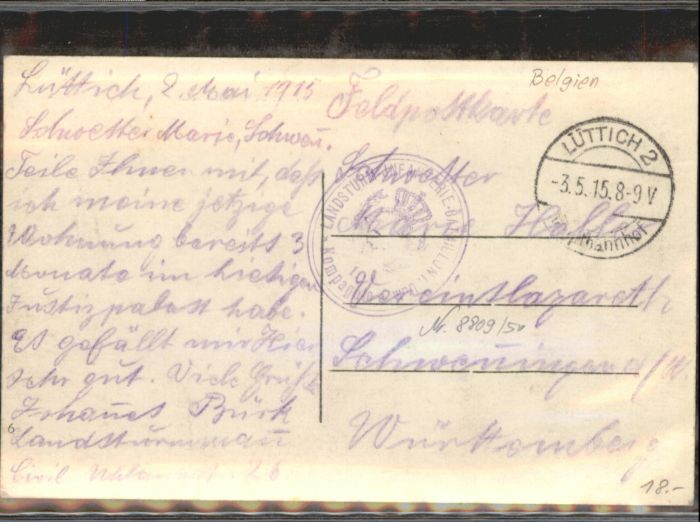 Lüttich, 2 Mai 1915
Schwester Marie, Schwen.
Teile Ihnen mit, daß
ich meine jetzige
Wohnung bereits 3
Monate im hiesigen
Justizpalast habe.
Es gefällt mir Hier
sehr gut. Viele Grüße
Johannes Bürk
Landsturmmann
Civil
26
Feldpostkarte
Belgien
LÜTTICH 2
-3.5.15.8-9V
LANDSTURM-INFANTERIE-BATAILLON
Kompagnie
Schwester
Marie
Vereinslazareth
Nr. 8809/50
Schwenningen a/N.
Württemberg
18.-